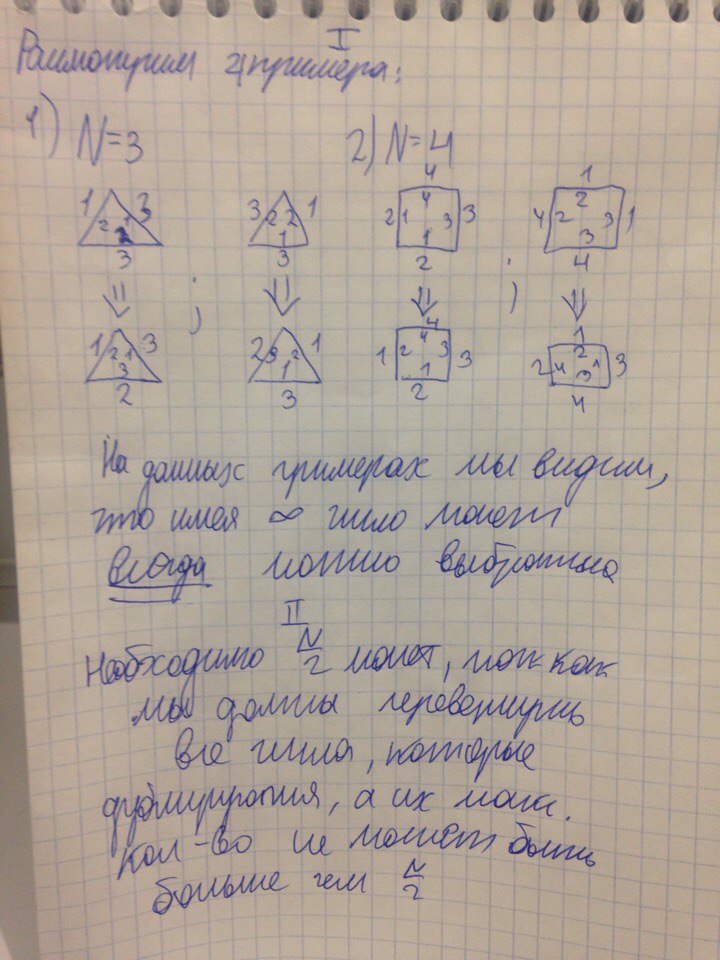 I
Рассмотрим 4 примера:
1) N=3 2) N=4
4 1
1 3 3 1 4 2
2 1 2 2 2 1 3 3 4 2 3 1
2 1 1 3
3 3 2 4
; ;
4 1
1 3 2 1 4 2
2 1 3 2 1 2 3 3 2 4 1 3
3 1 1 3
2 3 2 4
На данных примерах мы видим,
что имея ∞ число монет
всегда можно выбрать на
II
Необходимо N/2 монет, так как
мы должны перевернуть
все числа, которые
дублируются, а их макс.
кол-во не может быть
больше чем N/2